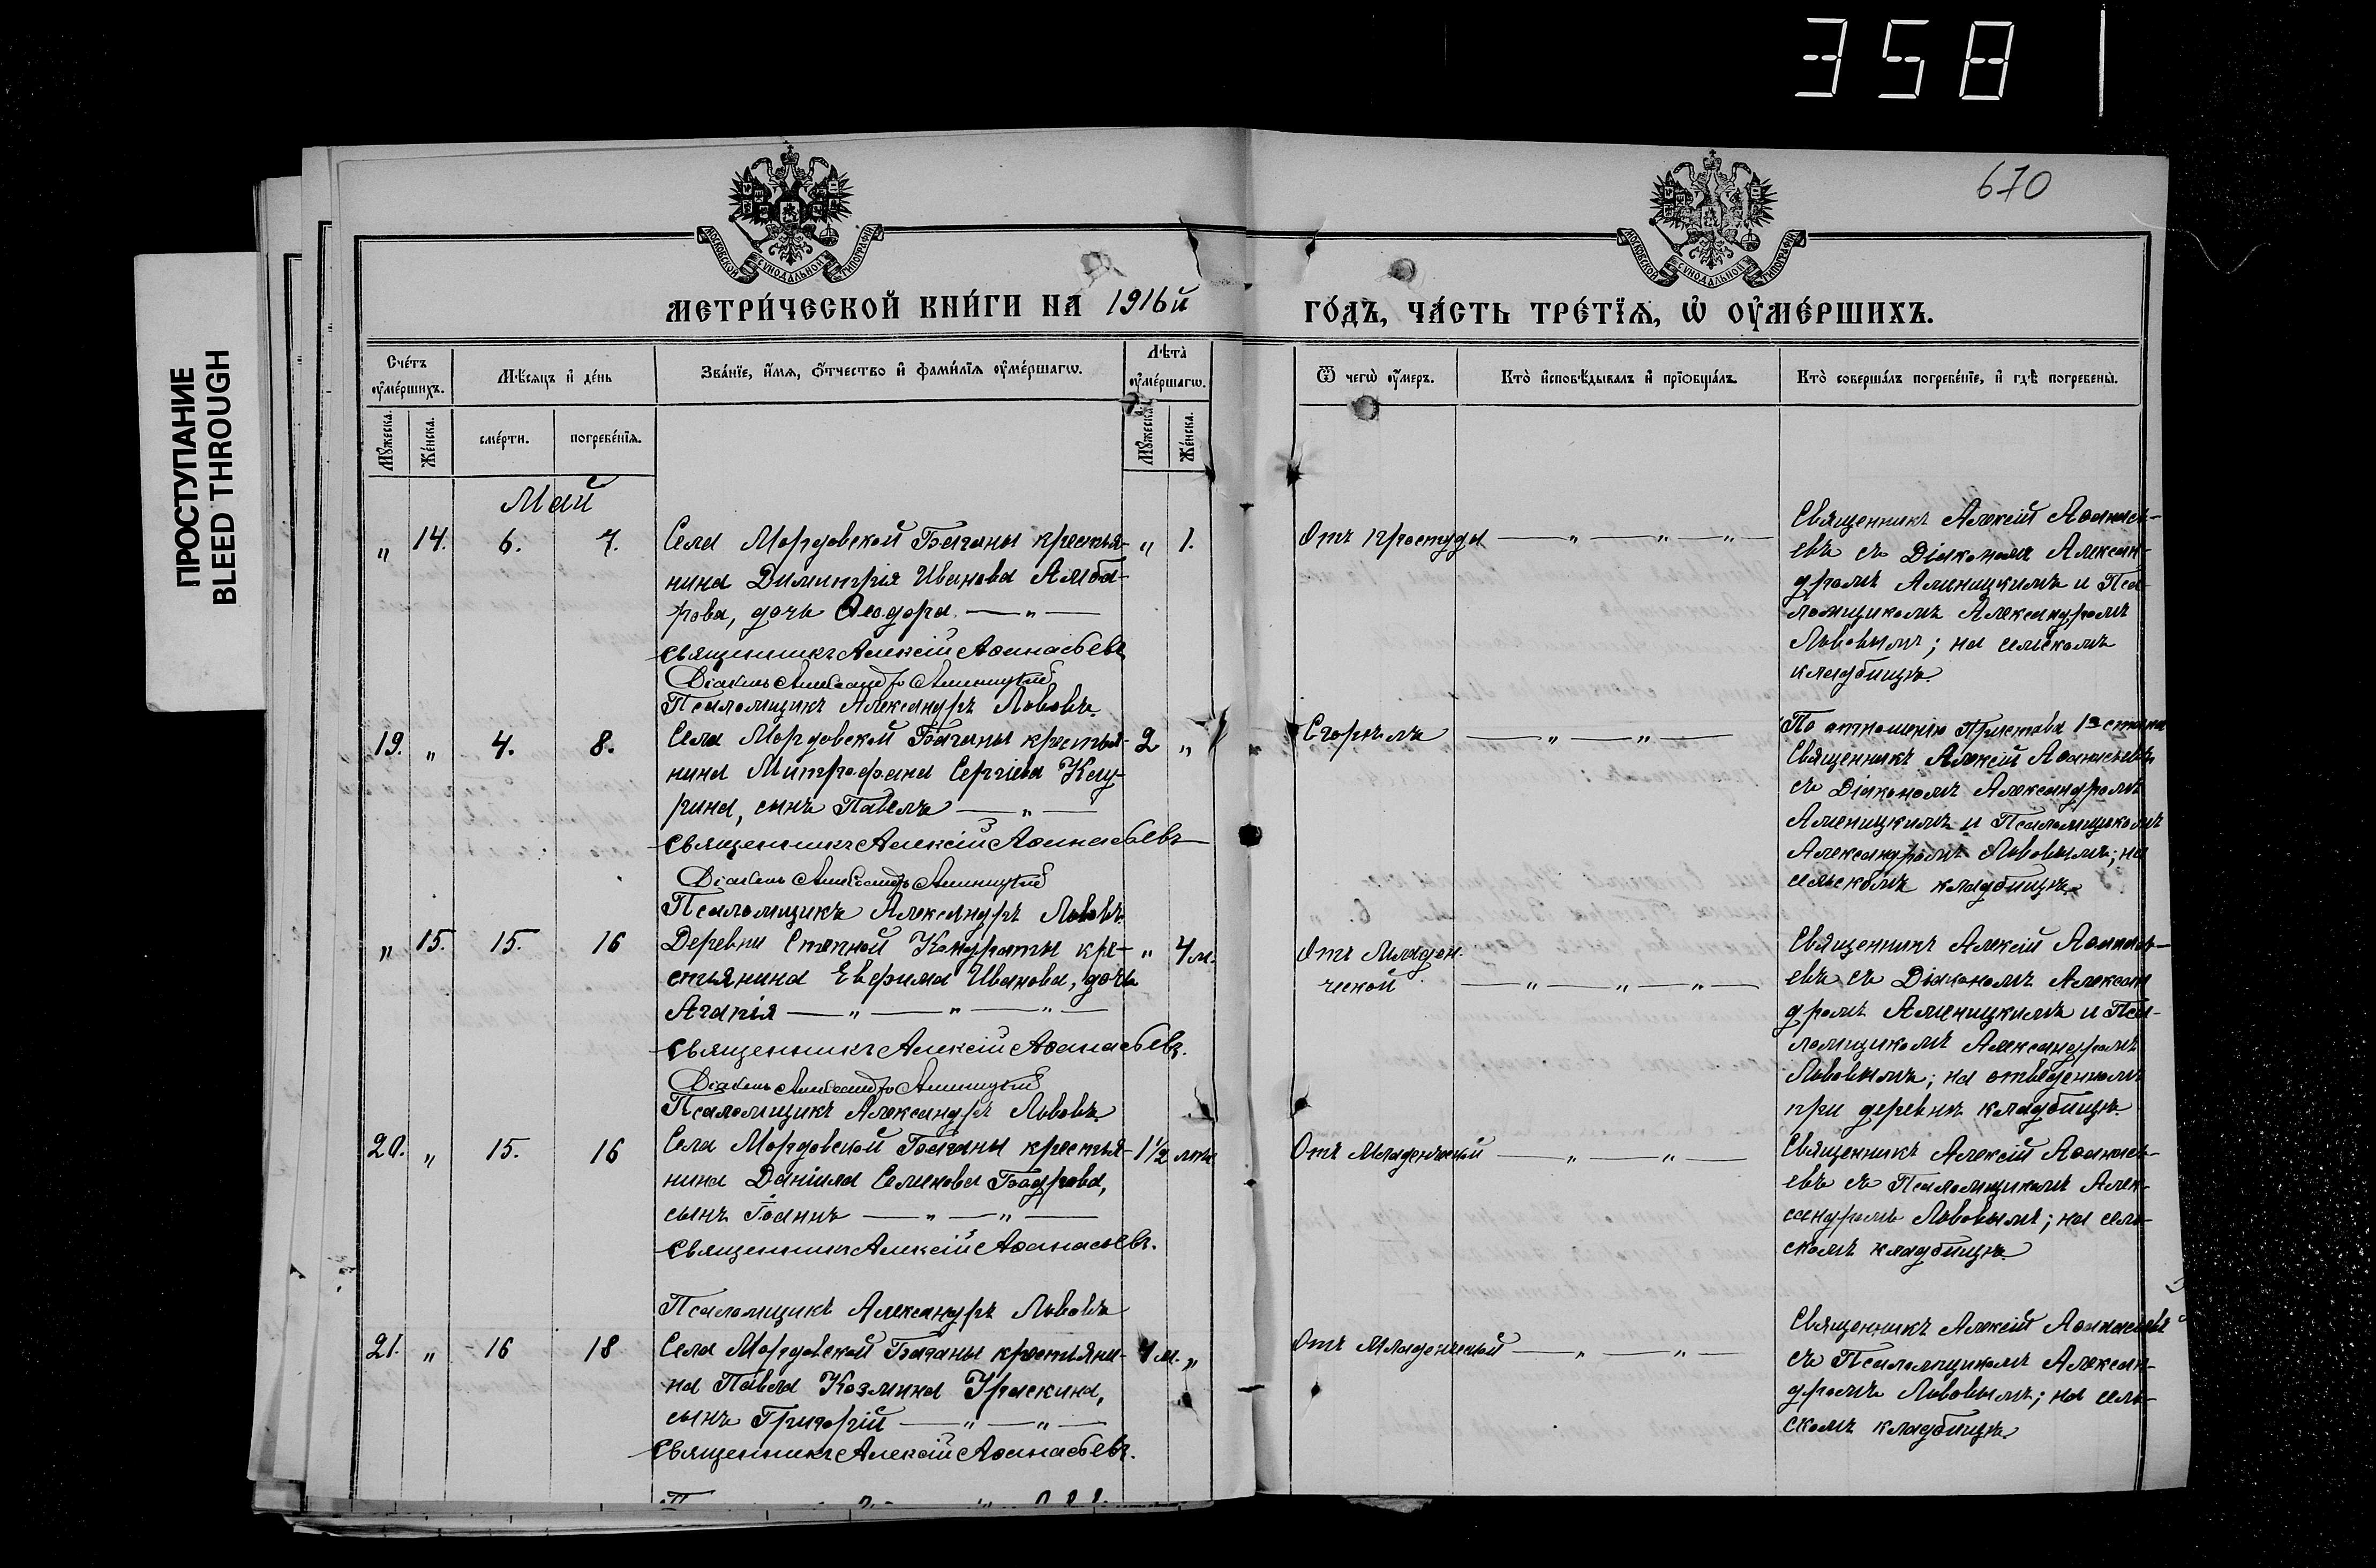 358
ПРОСТУПАНИЕ
BLEED THROUGH
670
МОСКОВСКОЙ СѴНОДАЛЬНОЙ ТИПОГРАФІИ
МОСКОВСКОЙ СѴНОДАЛЬНОЙ ТИПОГРАФІИ
МЕТРИ́ЧЕСКОЙ КНИ́ГИ НА 1916й
ГО́ДЪ, ЧА́СТЬ ТРЕ́ТІѦ, Ѡ҆ ОУ҆МЕ́РШИХЪ.
Сче́тъ оу҆ме́ршихъ.
Мꙋжеска.
Же́нска.
Мѣ́сяцъ и҆ де́нь
сме́рти.
погребе́нїѧ.
Зва́нїе, и҆́мѧ, ѻ҆́тчество и҆ фами́лїѧ оу҆ме́ршагѡ.
Лѣ́та оу҆ме́ршагѡ.
Мꙋжеска.
Же́нска.
Ѿ чегѡ̀ оу҆́меръ.
Кто̀ и҆сповѣ́дывалъ и҆ прїѡбща́лъ.
Кто̀ соверша́лъ погребе́нїе, и҆ гдѣ̀ погребены̀.
Май
" 14. 6. 7.
Села Мордовской Баганы крестья-
нина Димитрія Иванова Амба-
рова, дочь Ѳеодора. — " —
Священникъ Алексій Аѳанасьевъ
Діаконъ Александръ Аменицкій
Псаломщикъ Александръ Львовъ.
" 1.
Отъ простуды — " — " — " —
Священникъ Алексій Аѳанась-
евъ съ Діакономъ Алексан-
дромъ Аменицкимъ и Пса-
ломщикомъ Александромъ
Львовымъ; на сельскомъ
кладбищѣ.
19. " 4. 8.
Села Мордовской Баганы крестья-
нина Митрофана Сергіева Кау-
рина, сынъ Павелъ — " —
Священникъ Алексій Аѳанасьевъ
Діаконъ Александръ Аменицкій
Псаломщикъ Александръ Львовъ.
2 "
Сгорѣлъ — " — " —
По отношенію Пристава 1го стана
Священникъ Алексій Аѳанасьевъ
съ Діакономъ Александромъ
Аменицкимъ и Псаломщикомъ
Александромъ Львовымъ; на
сельскомъ кладбищѣ.
" 15. 15. 16
Деревни Степной Кондраты кре-
стьянина Евфима Иванова, дочь
Агапія — " — " — " —
Священникъ Алексій Аѳанасьевъ.
Діаконъ Александръ Аменицкій
Псаломщикъ Александръ Львовъ.
" 4 м.
Отъ Младен-
ческой — " — " — " —
Священникъ Алексій Аѳанась-
евъ съ Діакономъ Алексан
дромъ Аменицкимъ и Пса-
ломщикомъ Александромъ
Львовымъ; на отведенномъ
при деревнѣ кладбищѣ.
20. " 15. 16
Села Мордовской Баганы крестья-
нина Даніила Семенова Бодрова,
сынъ Іоаннъ — " — " —
Священникъ Алексій Аѳанасьевъ.
Псаломщикъ Александръ Львовъ
1½ лѣтъ
Отъ Младенческой — " — " —
Священникъ Алексій Аѳанась-
евъ съ Псаломщикомъ Алек-
сандромъ Львовымъ; на сель-
скомъ кладбищѣ.
21. " 16 18
Села Мордовской Баганы крестьяни-
на Павла Козмина Ураскина,
сынъ Григорій — " — " —
Священникъ Алексій Аѳанасьевъ.
4 м. "
Отъ Младенческой — " — " —
Священникъ Алексій Аѳанасьевъ
съ Псаломщикомъ Алексан-
дромъ Львовымъ; на сель-
скомъ кладбищѣ.